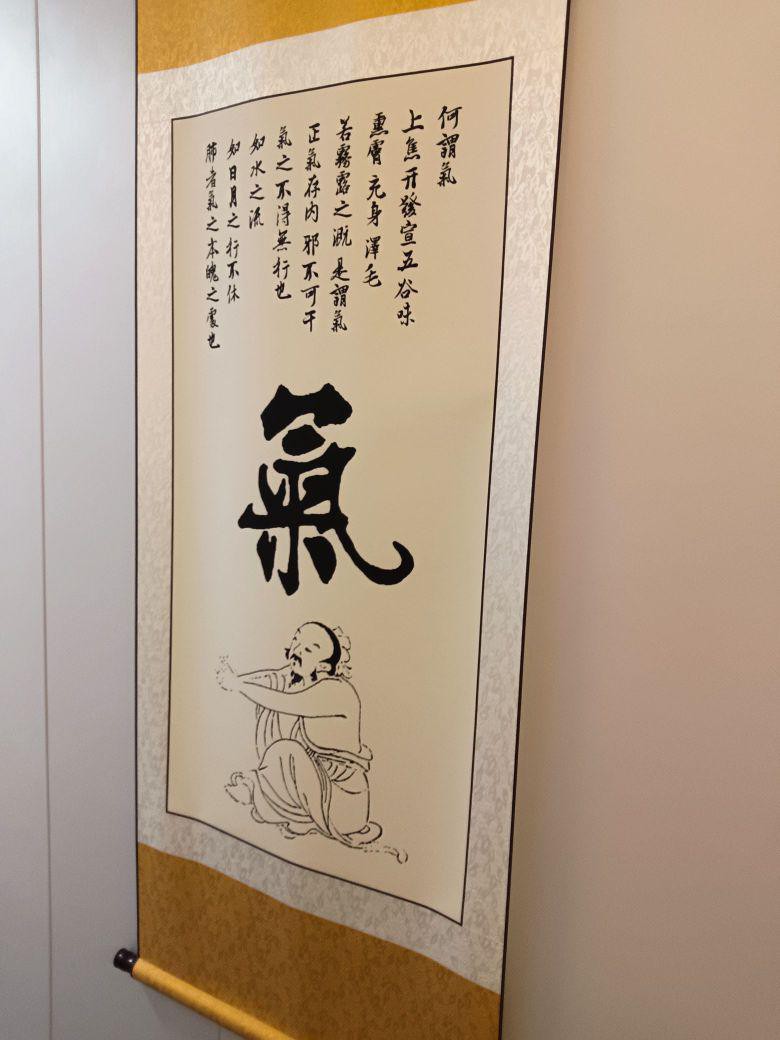 何謂氣
上焦开發宣五谷味
熏膚 充身 澤毛
若霧露之溉 是謂氣
正氣存内 邪不可干
氣之不得無行也
如水之流
如日月之行不休
肺者氣之本魄之處也
氣